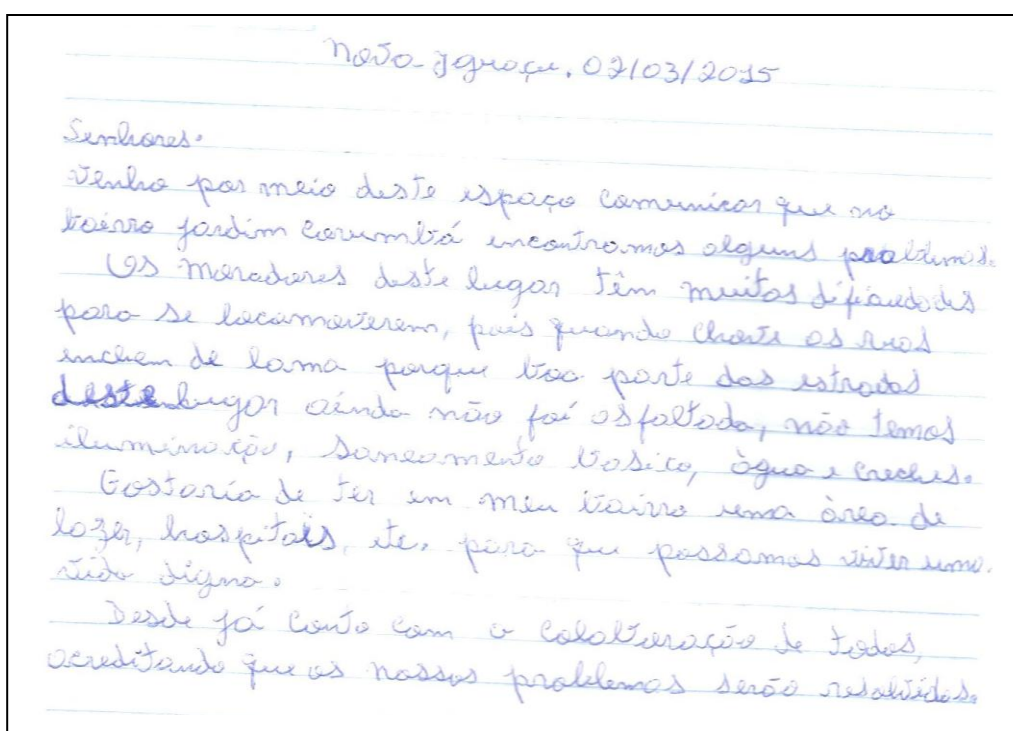 Nova Iguaçu, 02/03/2015
Senhores.
Venho por meio deste espaço comunicar que no
bairro jardim Corumbá encontramos alguns problemas.
Os moradores deste lugar têm muitas dificuldades
para se locomoverem, pois quando chove as ruas
enchem de lama porque boa parte das estradas
deste lugar ainda não foi asfaltada, não temos
iluminação, saneamento básico, àgua e creches.
Gostaria de ter em meu bairro uma àrea de
lazer, hospitais, etc, para que possamos viver uma
vida digna.
Desde já conto com a colaboração de todos,
acreditando que os nossos problemas serão resolvidos.